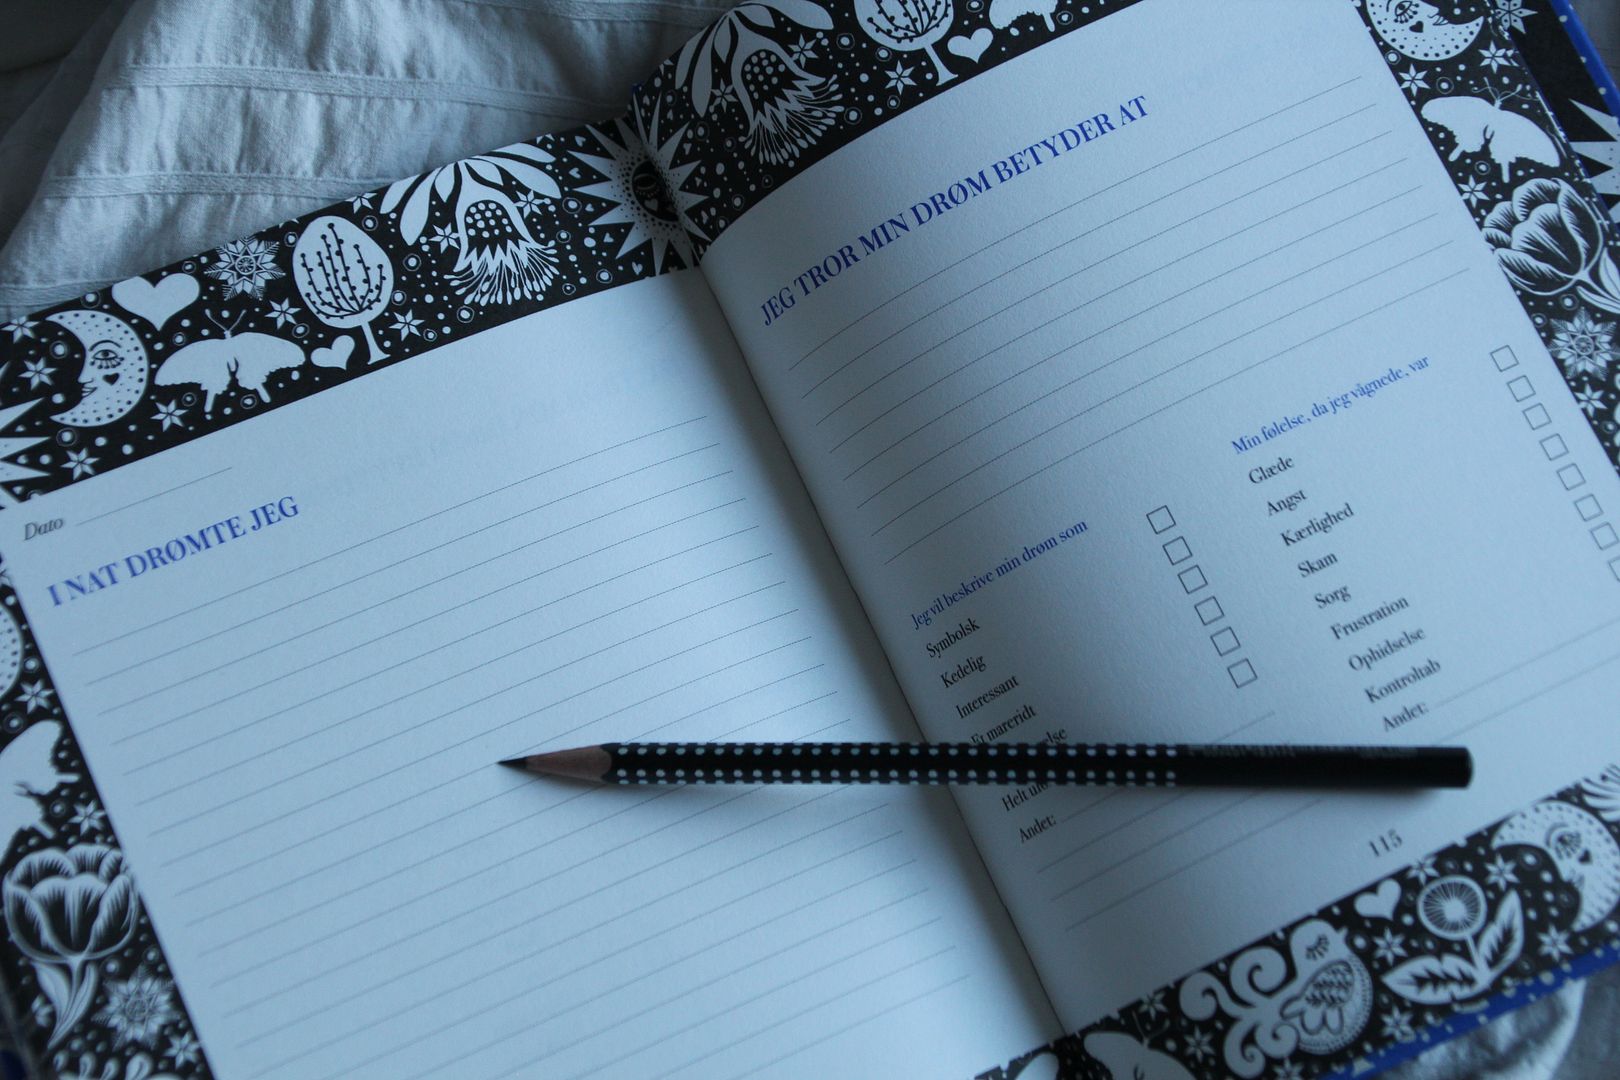 Dato
I NAT DRØMTE JEG
JEG TROR MIN DRØM BETYDER AT
Jeg vil beskrive min drøm som
Symbolsk
Kedelig
Interessant
Et mareridt
Helt
Andet:
Min følelse, da jeg vågnede, var
Glæde
Angst
Kærlighed
Skam
Sorg
Frustration
Ophidselse
Kontroltab
Andet:
115